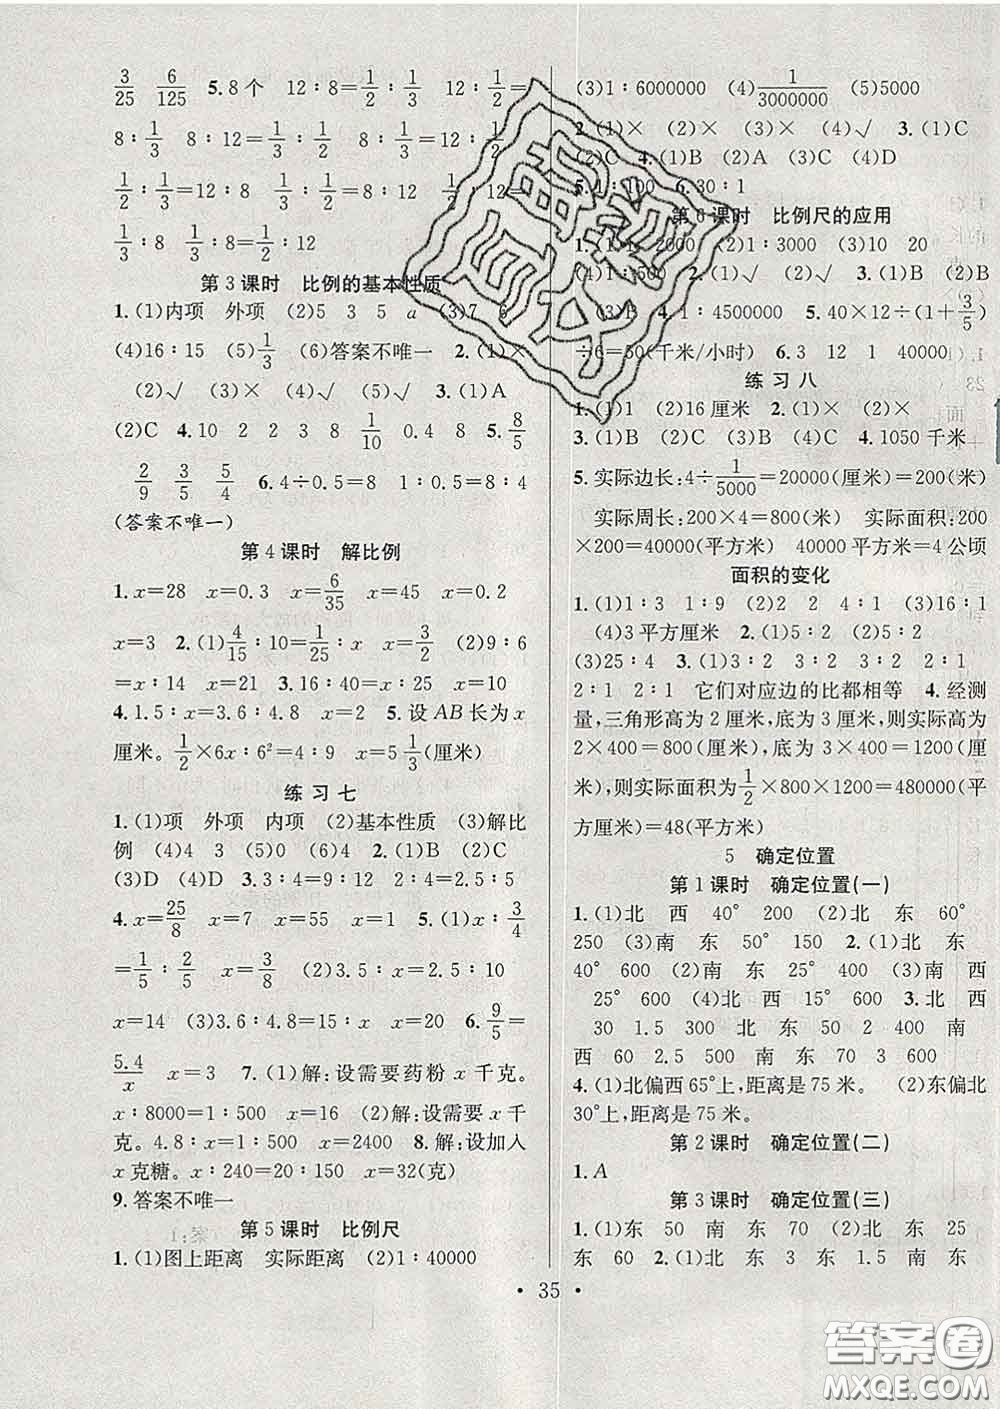 3/25 6/125 5.8个 12∶8=1/2∶1/3 12∶1/2=
8∶1/3 1/3∶8=1/2∶12 8∶1/3=12∶1/2
1/2∶1/3=12∶8 1/2∶12=1/3∶8 12∶1/2=
1/3∶8 1/3∶8=1/2∶12
第3课时 比例的基本性质
1.(1)内项 外项 (2)5 3 5 a (3)7 6
(4)16∶15 (5)1/3 (6)答案不唯一 2.(1)×
(2)√ (3)√ (4)× (5)√ 3.(1)A
(2)C 4.10 2 2 3 8 1/10 0.4 8 5.8/5
2/9 3/5 5/4 6.4÷0.5=8 1∶0.5=8∶4
(答案不唯一)
第4课时 解比例
1.x=28 x=0.3 x=6/35 x=45 x=0.2
x=3 2.(1)4/15∶10=1/25∶x x=3/2 (2)9∶6
=x∶14 x=21 3.16∶40=x∶25 x=10
4.1.5∶x=3.6∶4.8 x=2 5.设AB长为x
厘米。1/2×6x∶6²=4∶9 x=5 1/3(厘米)
练习七
1.(1)项 外项 内项 (2)基本性质 (3)解比
例 (4)4 3 (5)0 (6)4 2.(1)B (2)C
(3)D (4)D 3.3∶4=9∶12 4∶2=2.5∶5
4.x=25/8 x=7 x=55 x=1 5.(1)x∶3/4
=1/5∶2/5 x=3/8 (2)3.5∶x=2.5∶10
x=14 (3)3.6∶4.8=15∶x x=20 6.9/5=
5.4/x x=3 7.(1)解:设需要药粉x千克。
x∶8000=1∶500 x=16 (2)解:设需要x千
克。4.8∶x=1∶500 x=2400 8.解:设加入
x克糖。x∶240=20∶150 x=32(克)
9.答案不唯一
第5课时 比例尺
1.(1)图上距离 实际距离 (2)1∶40000
(3)1∶6000000 (4)1/3000000 (5)5000
2.(1)× (2)× (3)× (4)√ 3.(1)C
(2)C 4.(1)B (2)A (3)C (4)D
5.1∶100 6.30∶1
第6课时 比例尺的应用
1. 2000 (2)1∶3000 (3)10 20
(4)1∶1500 2.(1)√ (2)× 3.(1)B (2)B
4.1∶4500000 5.40×12÷(1+3/5)
÷6=50(千米/小时) 6.3 12 1 40000
练习八
1.(1)1 (2)16厘米 2.(1)× (2)×
3.(1)B (2)C (3)B (4)C 4.1050千米
5.实际边长:4÷1/5000=20000(厘米)=200(米)
实际周长:200×4=800(米) 实际面积:200
×200=40000(平方米) 40000平方米=4公顷
面积的变化
1.(1)1∶3 1∶9 (2)2 4∶1 (3)16∶1
(4)3平方厘米 2.(1)5∶2 (2)5∶2
(3)25∶4 3.(1)3∶2 3∶2 3∶2 2∶1
2∶1 2∶1 它们对应边的比都相等 4.经测
量,三角形高为2厘米,底为3厘米,则实际高为
2×400=800(厘米),底为3×400=1200(厘
米),则实际面积为1/2×800×1200=480000(平
方厘米)=48(平方米)
5 确定位置
第1课时 确定位置(一)
1.(1)北 西 40° 200 (2)北 东 60°
250 (3)南 东 50° 150 2.(1)北 东
40° 600 (2)南 东 25° 400 (3)南 西
25° 600 (4)北 西 15° 600 3.北 西
30 1.5 300 北 东 50 2 400 南
西 60 2.5 500 南 东 60 3 600
4.(1)北偏西65°上,距离是75米。 (2)东偏北
30°上,距离是75米。
第2课时 确定位置(二)
1.A
第3课时 确定位置(三)
1.(1)东 50 南 东 70 (2)北 东 25
东 60 (3)北 2 北 东 3 东 1.5 南 东
• 35 •
答案卷
MXQE.COM